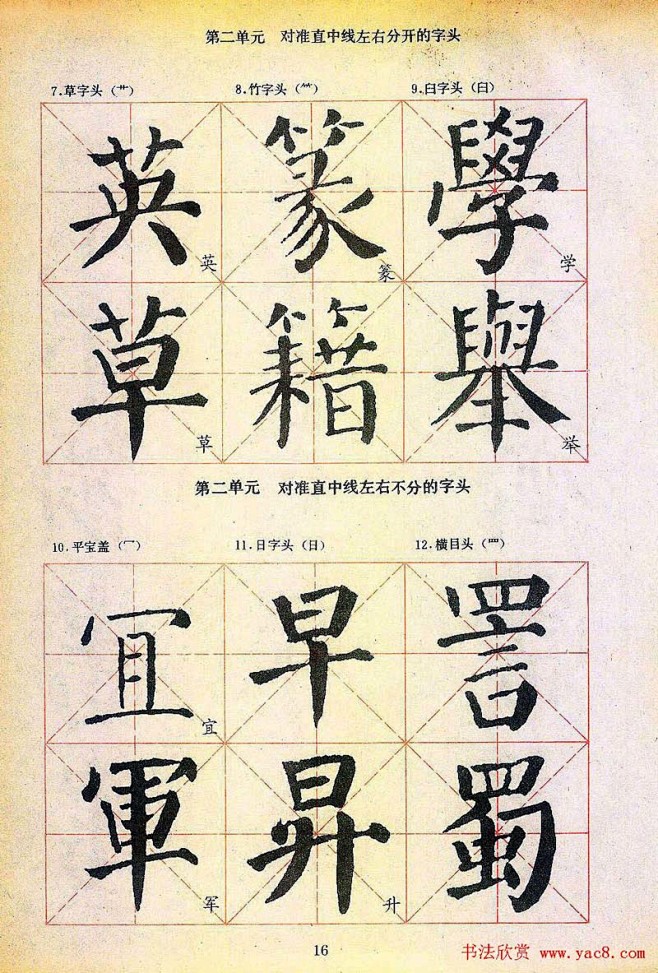 第二单元　对准直中线左右分开的字头
7.草字头（艹） 8.竹字头（⺮） 9.臼字头（臼）
英 篆 學
英 篆 学
草 籍 舉
草 举
第二单元　对准直中线左右不分的字头
10.平宝盖（冖） 11.日字头（日） 12.横目头（罒）
冝 早 詈
宜
軍 昇 蜀
军 升
16
书法欣赏 www.yac8.com